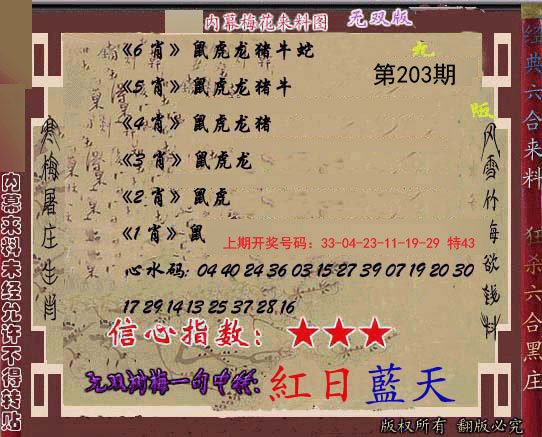 内幕梅花来料图 无双版
《6肖》鼠虎龙猪牛蛇
《5肖》鼠虎龙猪牛
《4肖》鼠虎龙猪
《3肖》鼠虎龙
《2肖》鼠虎
《1肖》鼠
第203期
上期开奖号码：33-04-23-11-19-29 特43
心水码: 04 40 24 36 03 15 27 39 07 19 20 30
17 29 14 13 25 37 28 16
信心指数：★★★
一句中特: 紅日藍天
版权所有 翻版必究
寒梅屠庄生肖
风雪竹梅欲钱料
内幕来料未经允许不得转贴
经典六合来料 狂杀六合黑庄